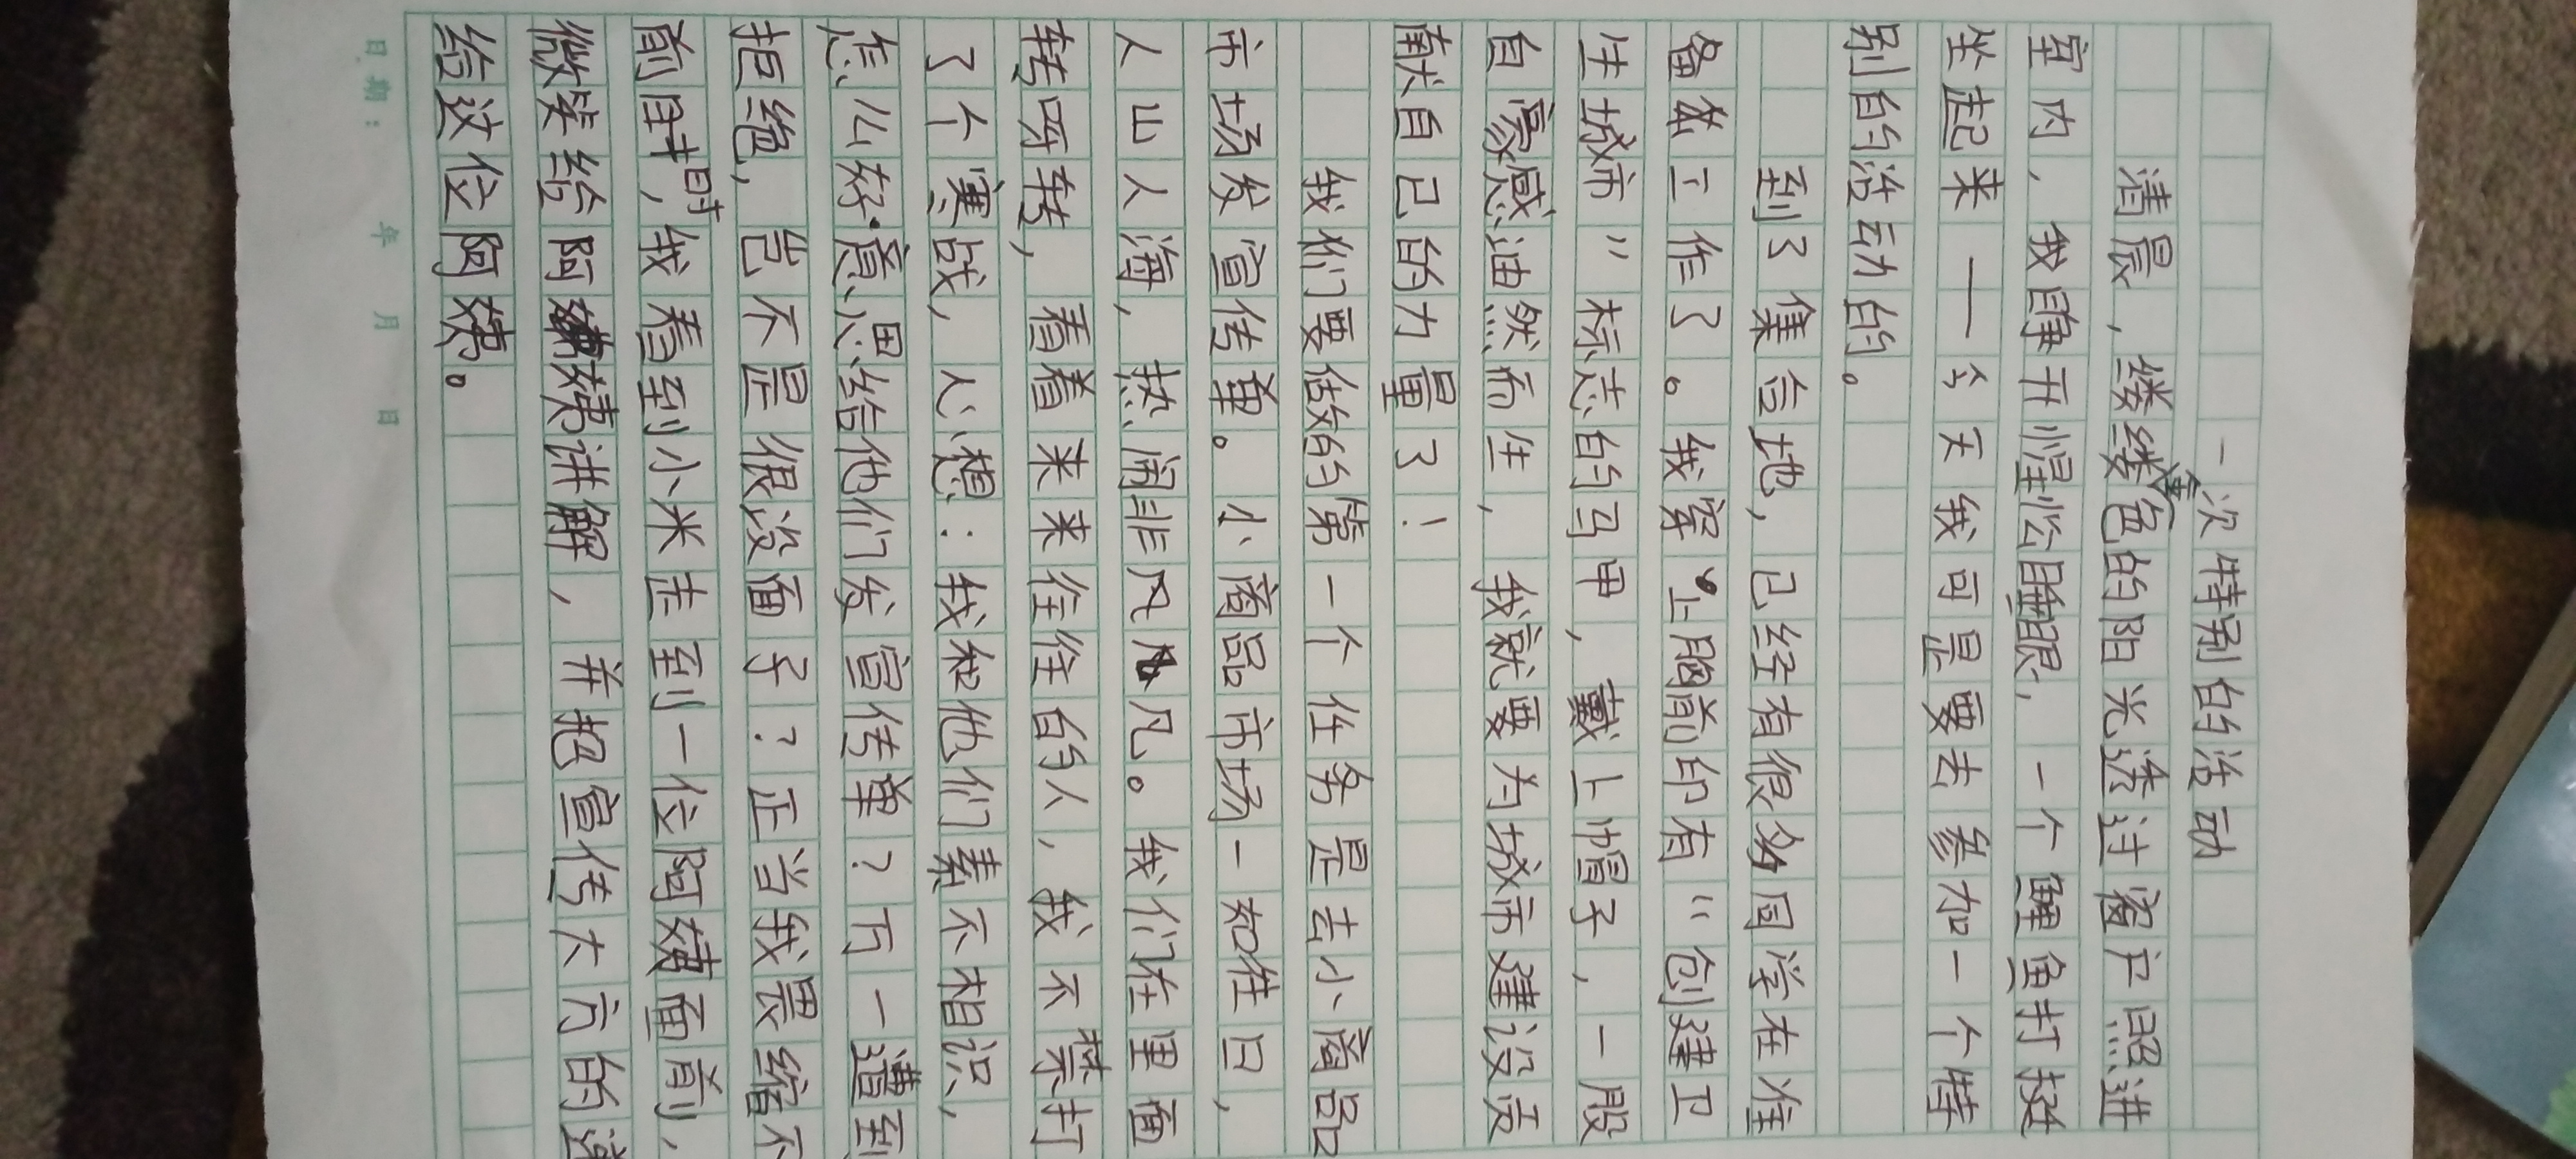 一次特别的活动
清晨，缕缕金色的阳光透过窗户照进
室内，我睁开惺忪睡眼，一个鲤鱼打挺
坐起来——今天我可是要去参加一个特
别的活动的。
到了集合地，已经有很多同学在准
备工作了。我穿上胸前印有“创建卫
生城市”标志的马甲，戴上帽子，一股
自豪感油然而生，我就要为城市建设贡
献自己的力量了！
我们要做的第一个任务是去小商品
市场发宣传单。小商品市场一如往日，
人山人海，热闹非凡。我们在里面
转呀转，看着来来往往的人，我不禁打
了个寒战，心想：我和他们素不相识，
怎么好意思给他们发宣传单？万一遭到
拒绝，岂不是很没面子？正当我畏缩不
前时，我看到小米走到一位阿姨面前，
微笑给阿姨讲解，并把宣传大方的递
给这位阿姨。
日期： 年 月 日